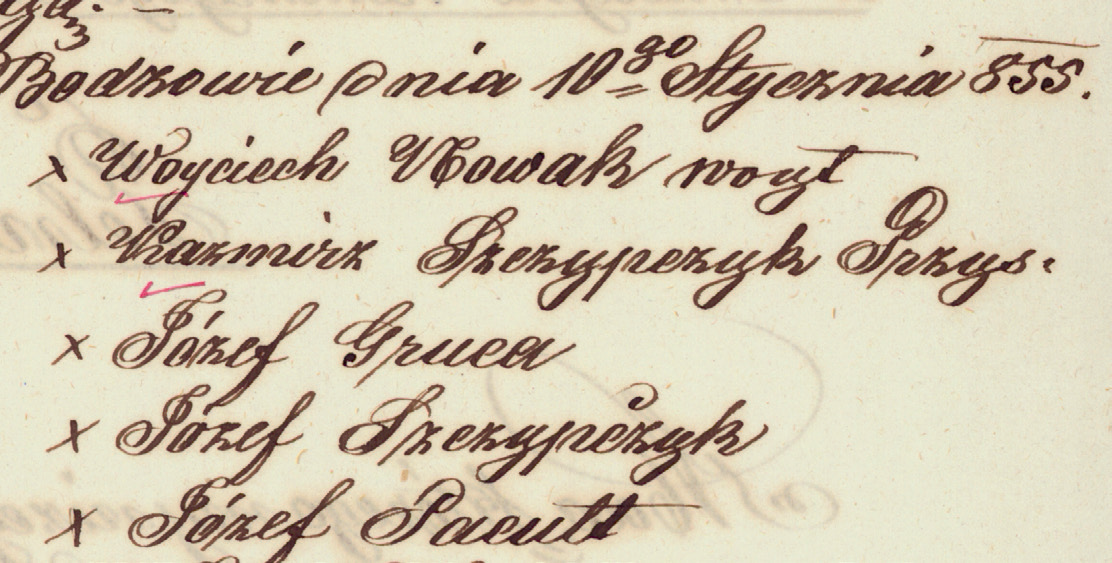 Bodzowie dnia 10go Stycznia 855.
x Woyciech Nowak woyt
x Kazmirz Szczypczyk Przys.
x Józef Gruca
x Józef Szczypczyk
x Józef Pacult